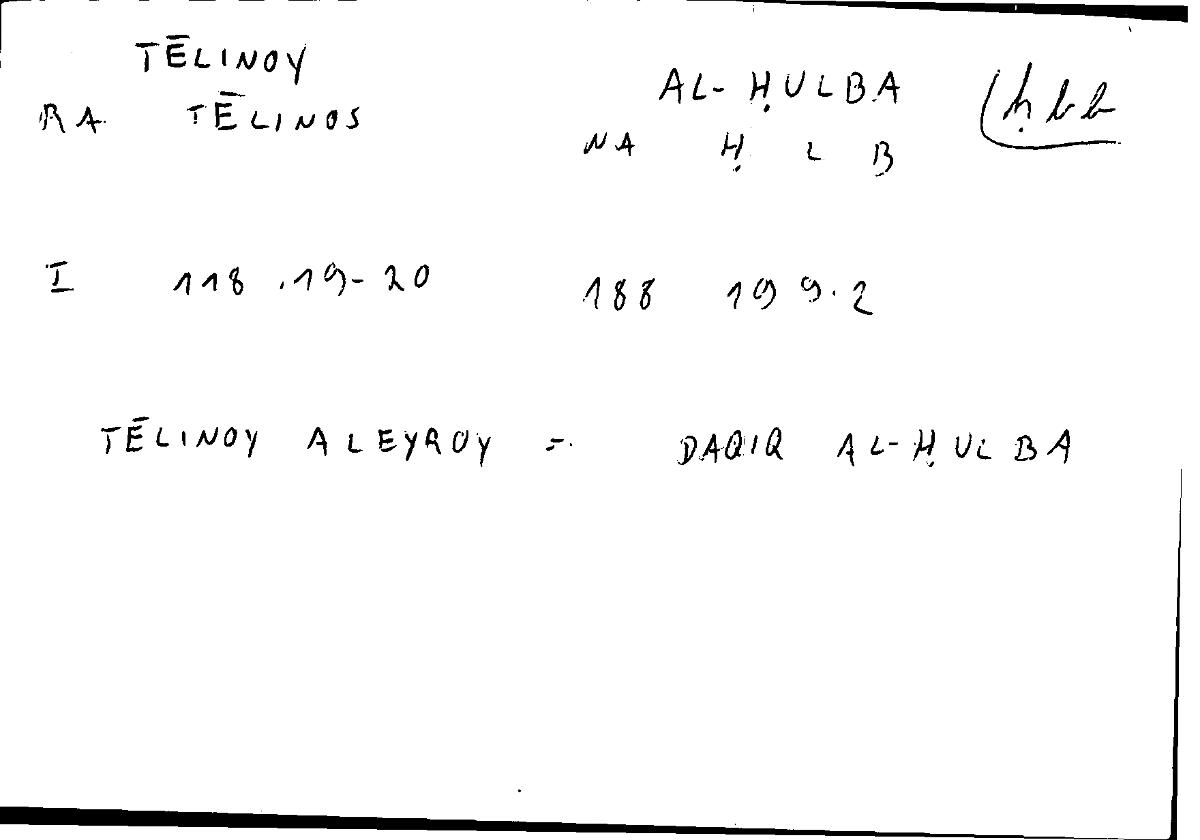 TĒLINOY AL-ḤULBA (ḥbb
RA TĒLINOS NA Ḥ L B
I 118.19-20 188 199.2
TĒLINOY ALEYROY = DAQIQ AL-ḤULBA